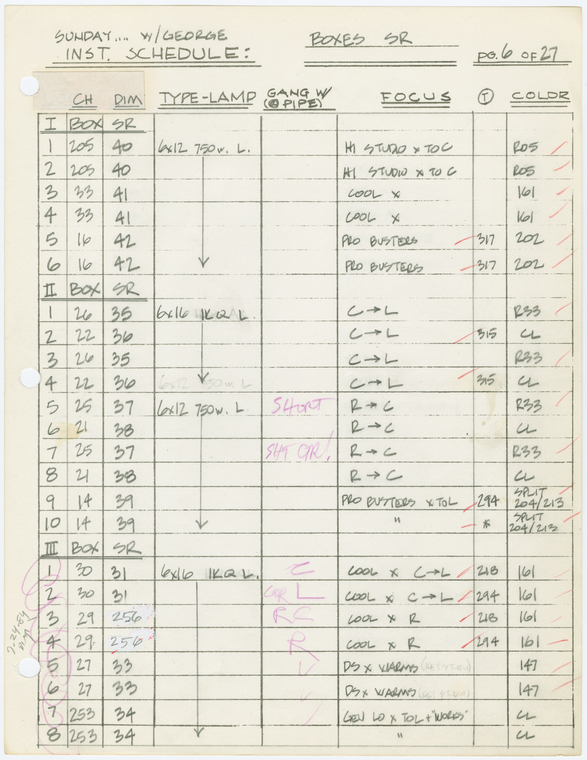 SUNDAY.... W/GEORGE BOXES SR
INST. SCHEDULE: PG. 6 OF 27
CH DIM TYPE-LAMP GANG W/ (@ PIPE) FOCUS T COLOR
I BOX SR
1 205 40 6x12 750w. L. HI STUDIO x TO C R05
2 205 40 HI STUDIO x TO C R05
3 33 41 COOL x 161
4 33 41 COOL x 161
5 16 42 PRO BUSTERS 317 202
6 16 42 PRO BUSTERS 317 202
II BOX SR
1 26 35 6x16 1K Q L. C → L R33
2 22 36 C → L 315 CL
3 26 35 C → L R33
4 22 36 6x12 750w L C → L 315 CL
5 25 37 6x12 750w. L SHORT R → C R33
6 21 38 R → C CL
7 25 37 R → C R33
8 21 38 R → C CL
9 14 39 PRO BUSTERS x TO L 294 SPLIT 204/213
10 14 39 " * SPLIT 204/213
III BOX SR
1 30 31 6x16 1K Q L. C COOL x C → L 218 161
2 30 31 L COOL x C → L 294 161
3 29 256 RC COOL x R 218 161
4 29 256 R COOL x R 294 161
5 27 33 DS x WARMS 147
6 27 33 DS x WARMS 147
7 253 34 GEN LO x TO L + "WORDS" CL
8 253 34 " CL